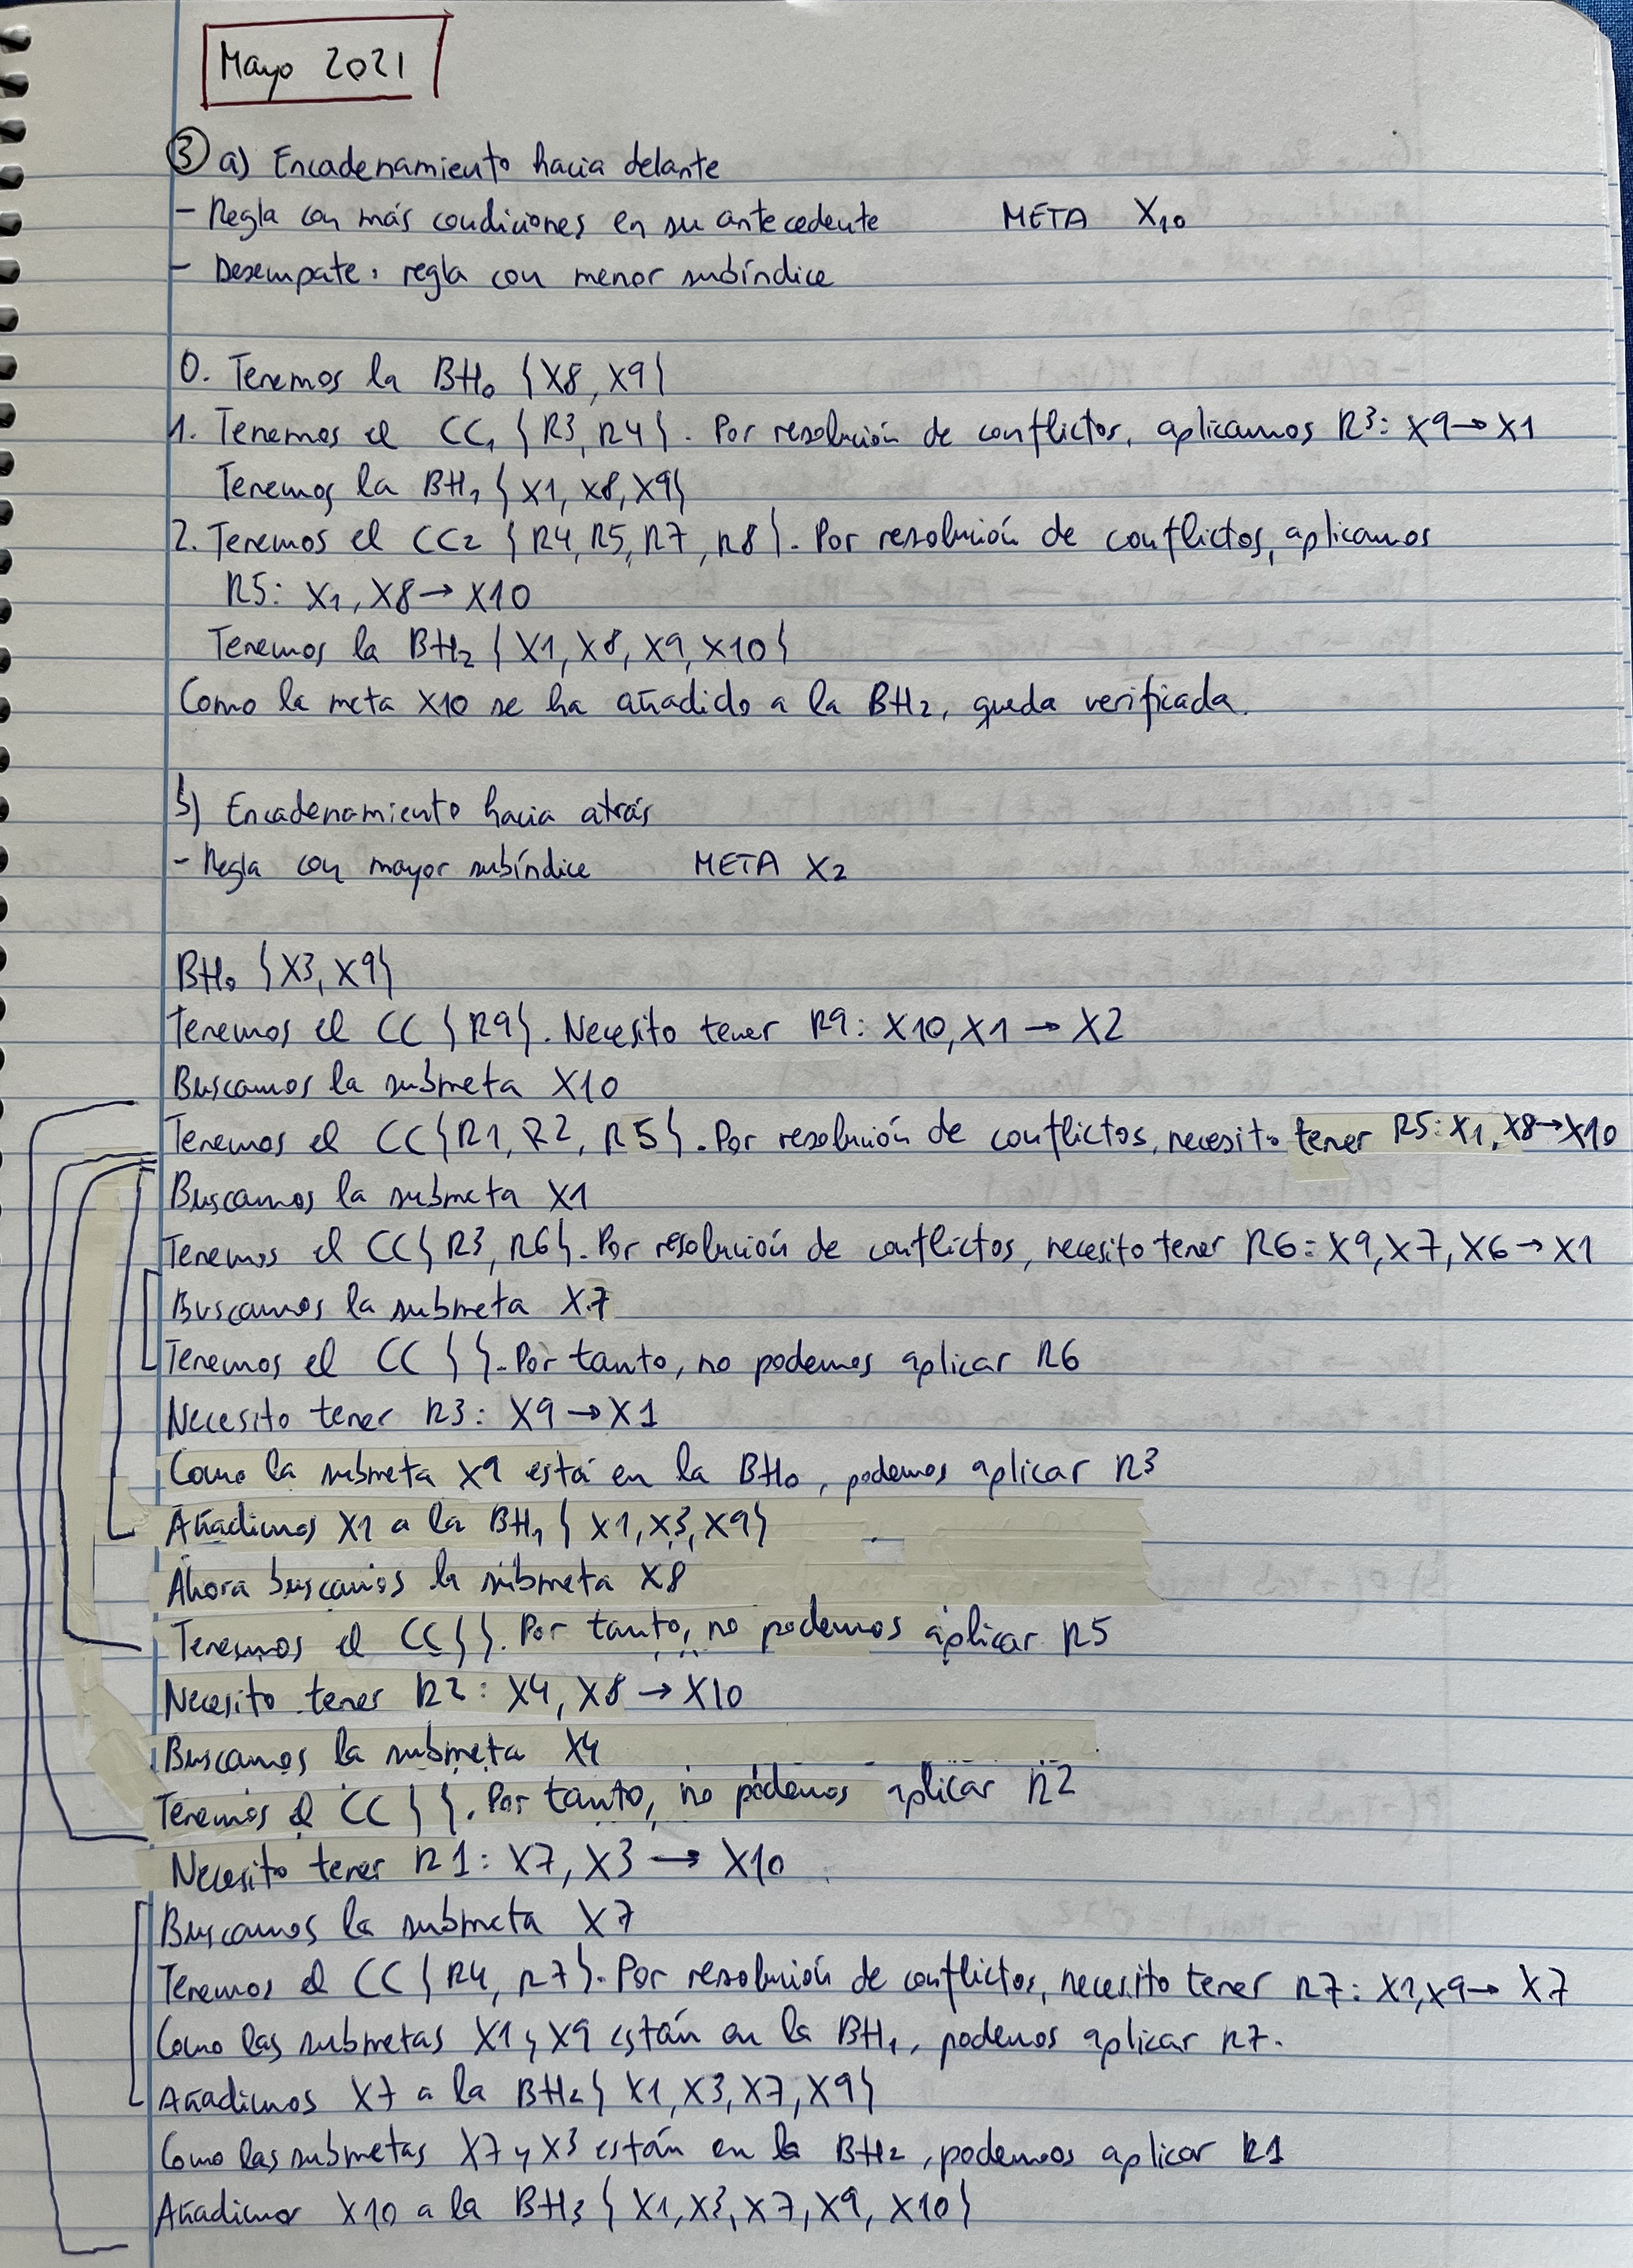 Mayo 2021
③ a) Encadenamiento hacia delante
- Regla con más condiciones en su antecedente META X10
- Desempate: regla con menor subíndice
0. Tenemos la BH0 {X8, X9}
1. Tenemos el CC1 {R3, R4}. Por resolución de conflictos, aplicamos R3: X9→X1
Tenemos la BH1 {X1, X8, X9}
2. Tenemos el CC2 {R4, R5, R7, R8}. Por resolución de conflictos, aplicamos
R5: X1, X8→X10
Tenemos la BH2 {X1, X8, X9, X10}
Como la meta X10 se ha añadido a la BH2, queda verificada.
b) Encadenamiento hacia atrás
- Regla con mayor subíndice META X2
BH0 {X3, X9}
Tenemos el CC {R9}. Necesito tener R9: X10, X1 → X2
Buscamos la submeta X10
Tenemos el CC {R1, R2, R5}. Por resolución de conflictos, necesito tener R5: X1, X8→X10
Buscamos la submeta X1
Tenemos el CC {R3, R6}. Por resolución de conflictos, necesito tener R6: X9, X7, X6→X1
Buscamos la submeta X7
Tenemos el CC { }. Por tanto, no podemos aplicar R6
Necesito tener R3: X9→X1
Como la submeta X9 está en la BH0, podemos aplicar R3
Añadimos X1 a la BH1 {X1, X3, X9}
Ahora buscamos la submeta X8
Tenemos el CC { }. Por tanto, no podemos aplicar R5
Necesito tener R2: X4, X8 → X10
Buscamos la submeta X4
Tenemos el CC { }. Por tanto, no podemos aplicar R2
Necesito tener R1: X7, X3 → X10
Buscamos la submeta X7
Tenemos el CC {R4, R7}. Por resolución de conflictos, necesito tener R7: X1, X9→ X7
Como las submetas X1 y X9 están en la BH1, podemos aplicar R7.
Añadimos X7 a la BH2 {X1, X3, X7, X9}
Como las submetas X7 y X3 están en la BH2, podemos aplicar R1
Añadimos X10 a la BH3 {X1, X3, X7, X9, X10}